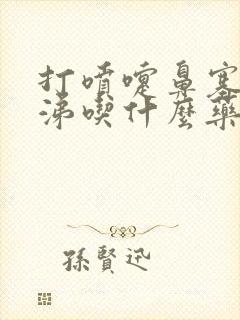 打噴嚏鼻塞
涕喫什麼藥
孫賢迅